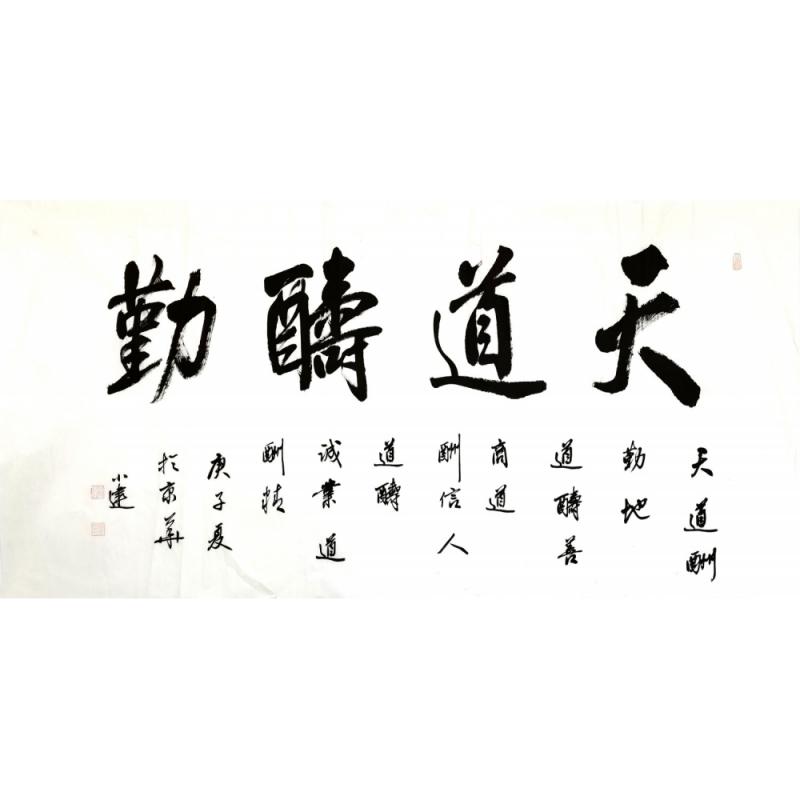 天道醻勤
天道酬
勤地
道醻善
商道
酬信人
道醻
诚業道
酬精
庚子夏
於京華
小